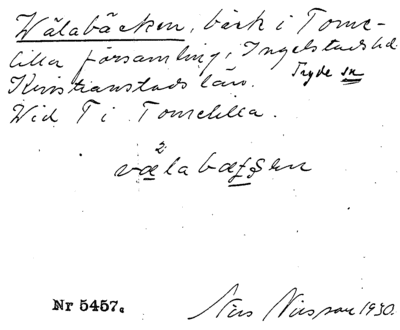 Wälabäcken, bäck i Tome-
lilla församling, Ingelstads hd
Kristianstads län. Tryde sn
Wid T i Tomelilla.
2
vælabæʃʂen
Nr 5457.
Nils Nilsson 1930.